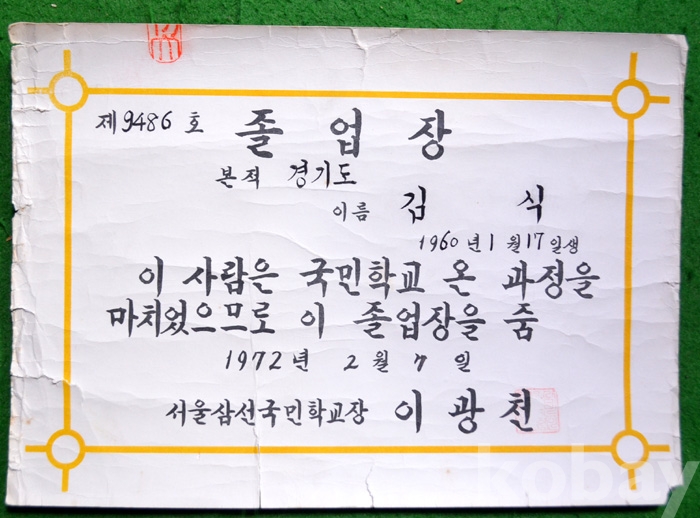 제9486호 졸업장
본적 경기도
이름 김 식
1960년 1월 17일생
이 사람은 국민학교 온 과정을
마치었으므로 이 졸업장을 줌
1972년 2월 7일
서울삼선국민학교장 이광천
kobay